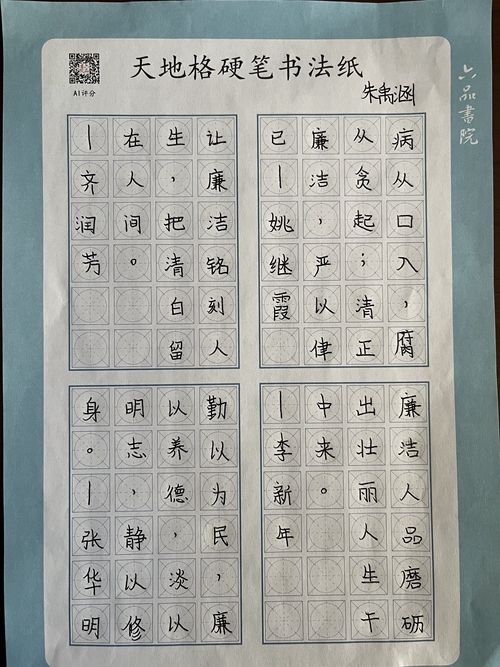 天地格硬笔书法纸
AI评分
朱禹涵
六品書院
病从口入，腐
从贪起；清正
廉洁，严以律
已—姚继霞
让廉洁铭刻人
生，把清白留
在人间。
—齐润芳
廉洁人品磨砺
出壮丽人生干
中来。
—李新年
勤以为民，廉
以养德，淡以
明志，静以修
身。—张华明